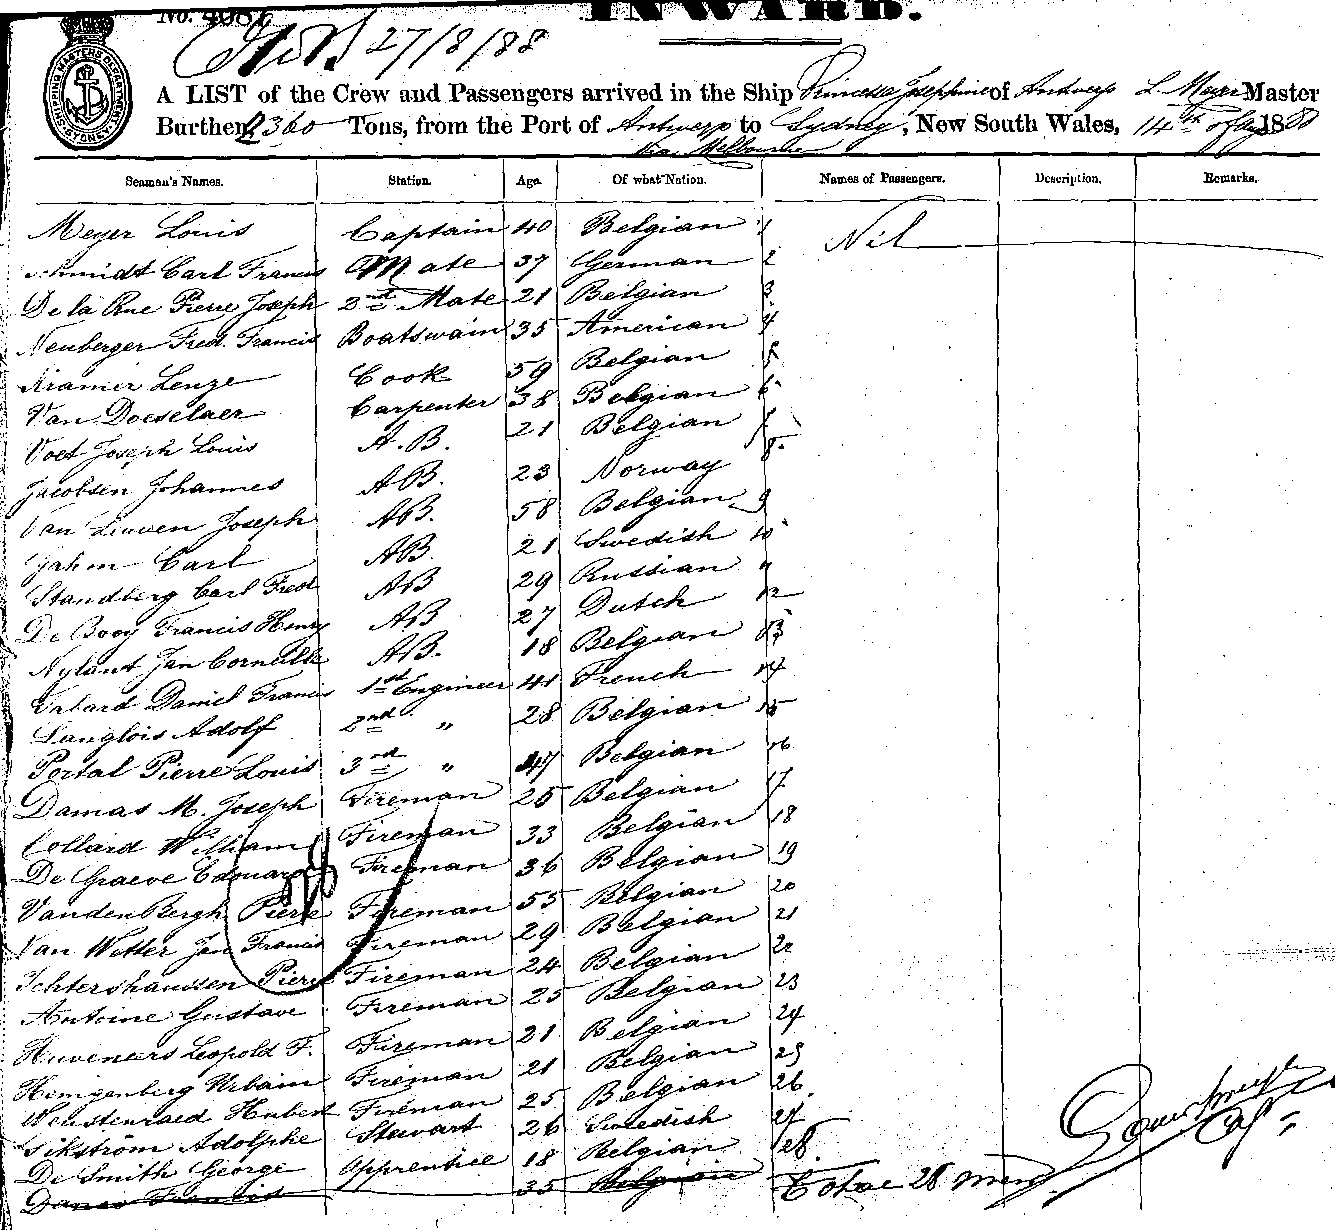 No. 4081
INWARD.
27/8/88
SHIPPING MASTERS DEPARTMENT SYDNEY
A LIST of the Crew and Passengers arrived in the Ship Princesse Josephine of Antwerp L. Meyer Master
Burthen 2360 Tons, from the Port of Antwerp to Sydney, New South Wales, 14th of Aug 1888
Via Melbourne
Seaman's Names. Station. Age. Of what Nation. Names of Passengers. Description. Remarks.
Meyer Louis Captain 40 Belgian 1 Nil
Schmidt Carl Francis Mate 37 German 2
De la Rue Pierre Joseph 2nd Mate 21 Belgian 3
Neuberger Fred. Francis Boatswain 35 American 4
Kramer Lenze Cook 59 Belgian 5
Van Doeselaer Carpenter 38 Belgian 6
Voet Joseph Louis A.B. 21 Belgian 7
Jacobsen Johannes AB. 23 Norway 8
Van Leuven Joseph AB. 58 Belgian 9
Jahm Carl AB 21 Swedish 10
Standberg Carl Fred AB 29 Russian 11
De Booy Francis Henry AB 27 Dutch 12
Nylant Jan Corneille AB. 18 Belgian 13
Daniel Francis 1st Engineer 41 French 14
Langlois Adolf 2nd " 28 Belgian 15
Portal Pierre Louis 3rd " 47 Belgian 16
Damas M. Joseph Fireman 25 Belgian 17
Collard William Fireman 33 Belgian 18
De Graeve Edouard Fireman 36 Belgian 19
Vanden Bergh Pierre Fireman 55 Belgian 20
Van Wetter Jan Francis Fireman 29 Belgian 21
Ichtershaussen Pierre Fireman 24 Belgian 22
Antoine Gustave Fireman 25 Belgian 23
Huveneers Leopold F. Fireman 21 Belgian 24
Hemigenberg Urbain Fireman 21 Belgian 25
Wenstenraed Hubert Fireman 25 Belgian 26
Sikström Adolphe Stewart 26 Swedish 27
De Smith George Apprentice 18 Belgian 28
Danes Francis 35 Belgian Total 28 men
Louis Meyer
Capt